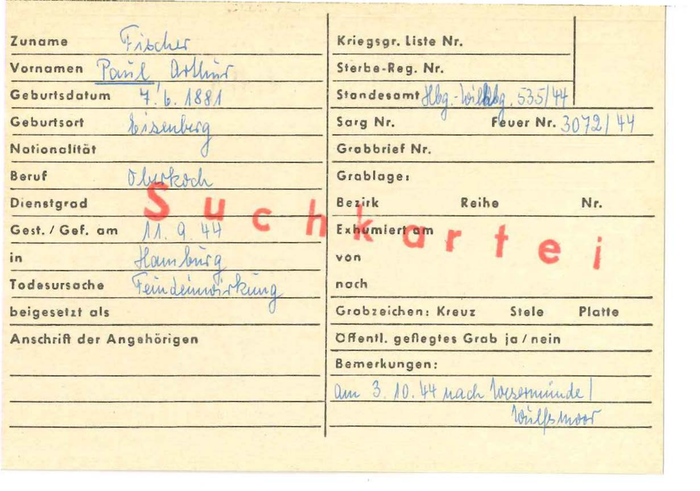 Zuname Fischer
Vornamen Paul, Arthur
Geburtsdatum 7.6.1881
Geburtsort Eisenberg
Nationalität
Beruf Oberkoch
Dienstgrad
Gest./Gef. am 11.9.44
in Hamburg
Todesursache Feindeinwirkung
beigesetzt als
Anschrift der Angehörigen
Suchkartei
Kriegsgr. Liste Nr.
Sterbe-Reg. Nr.
Standesamt Hbg.-Wilhbg. 535/44
Sarg Nr. Feuer Nr. 3072/44
Grabbrief Nr.
Grablage:
Bezirk Reihe Nr.
Exhumiert am
von
nach
Grabzeichen: Kreuz Stele Platte
Öffentl. gepflegtes Grab ja/nein
Bemerkungen:
am 3.10.44 nach Wesermünde/
Wulfsmoor